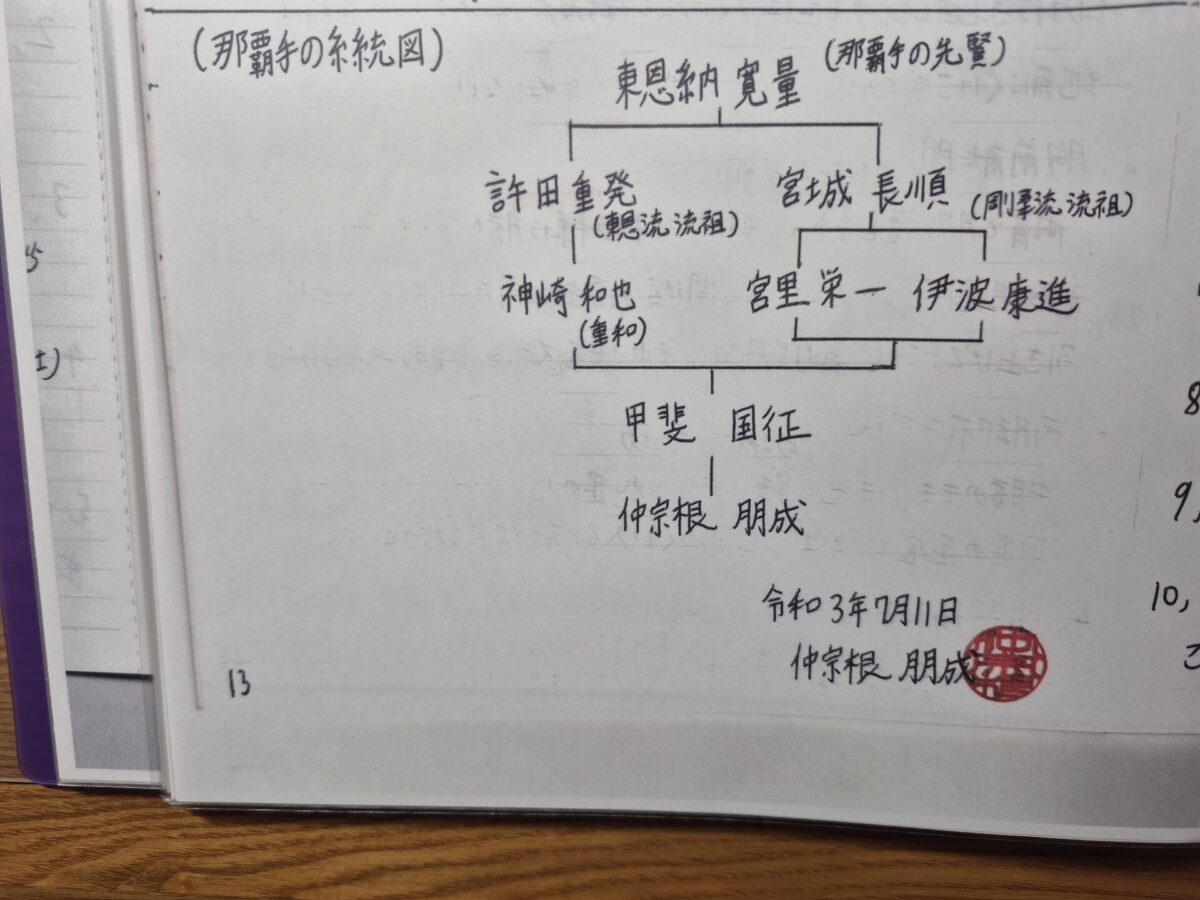 (那覇手の糸統図)
東恩納 寛量 (那覇手の先賢)
許田重発 宮城 長順 (剛柔流 流祖)
(東恩流 流祖)
神崎 和也 宮里 栄一 伊波 康進
(重和)
甲斐 国征
仲宗根 朋成
令和3年7月11日
仲宗根 朋成
13
8
9,
10,